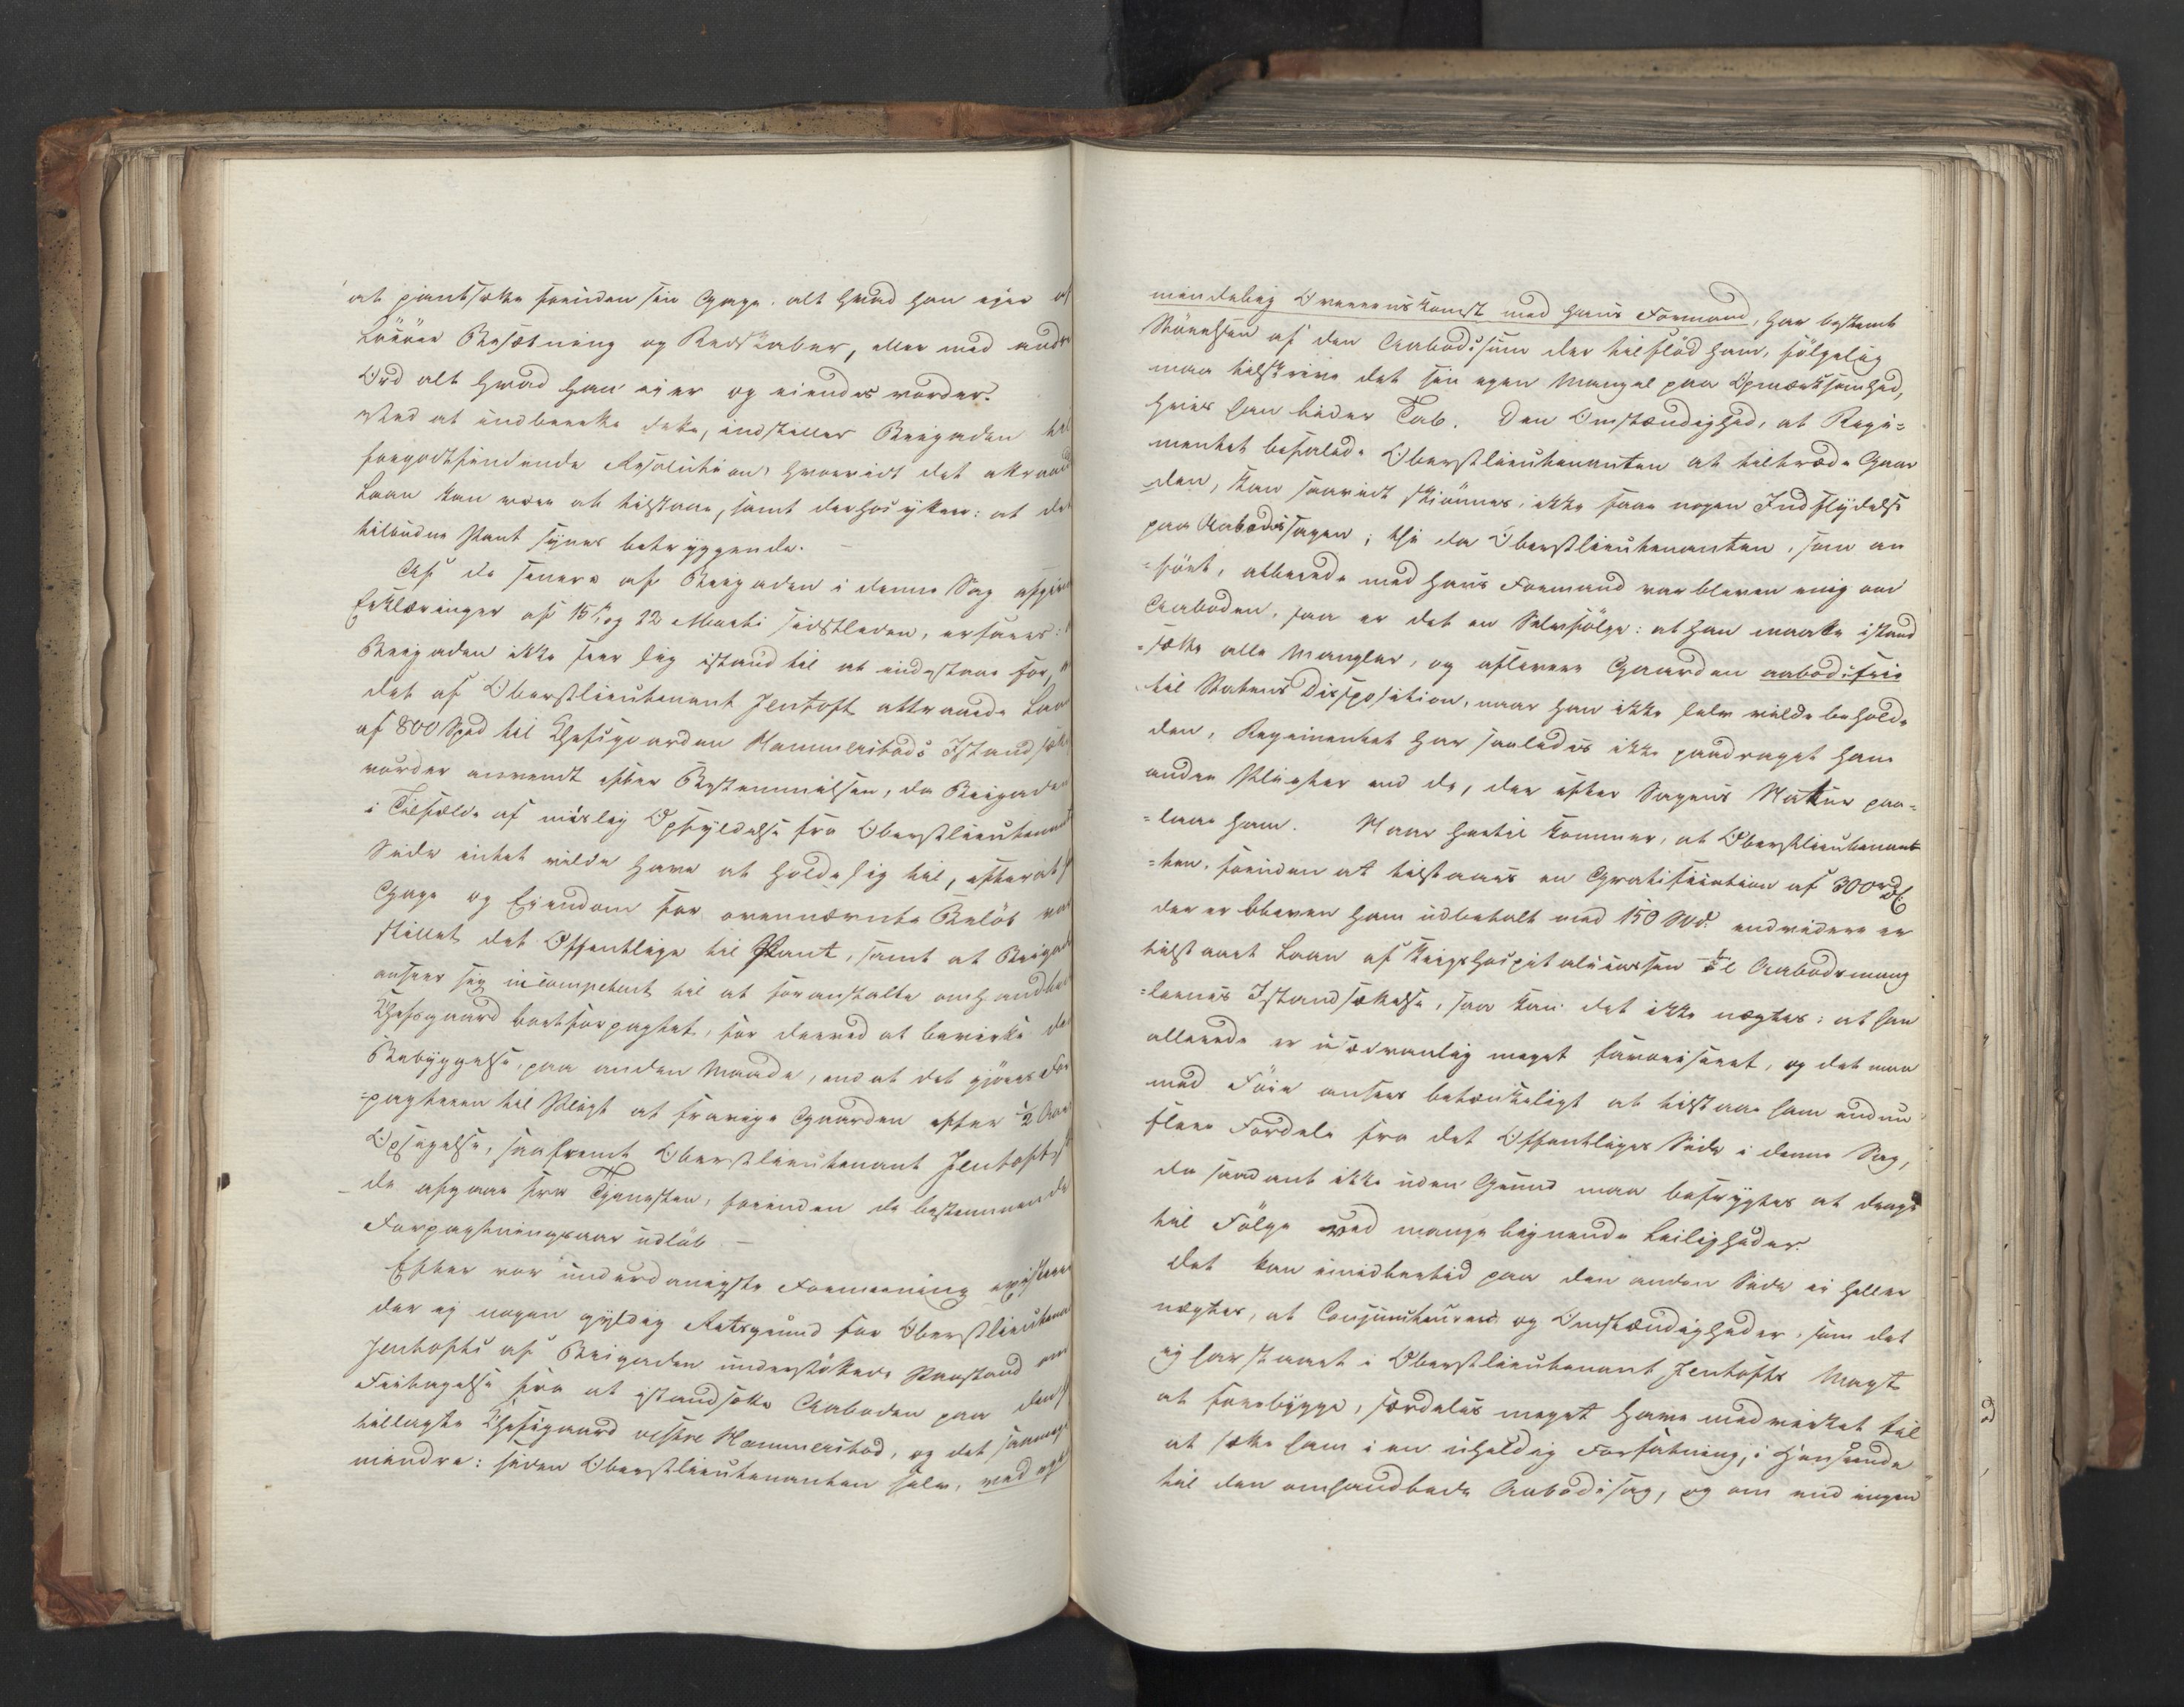 at pantsætte foruden sin Gage, alt hvad han ejer af
Løsøre Besætning og Redskaber, eller med andre
Ord alt hvad han ejer og ejendes vorder.
Ved at indberette dette, indstiller Brigaden til
foregodtfindende Resolution, hvorvidt det attraaede
Laan kan være at tilstaae, samt derhos yttrer: at det
tilbudne Pant synes betryggende. —
Af de senere af Brigaden i denne Sag afgivne
Erklæringer af 15de og 22 Marti sidstleden, erfares: 
Brigaden ikke seer sig istand til at indestaae for,
det af Oberstlieutenant Jentoft attraaede Laan
af 800 Spd til Chefsgaarden Hammerstads Istandsæt
vorder anvendt efter Bestemmelsen, da Brigaden
i Tilfælde af mislig Opfyldelse fra Oberstlieutenant
Side intet vilde have at holde sig til, efterat
Gage og Ejendom for ovennævnte Beløb var
stillet det Offentlige til Pant, samt at Brigad
anseer sig incompetent til at foranstalte omhandlede
Chefsgaard bortforpagtet, for derved at bevirke de
Bebyggelse paa anden Maade, end at det gjøres For
=pagteren til Pligt at fravige Gaarden efter ½ Aars
Opsigelse, saafremt Oberstlieutenant Jentoft
de afgaae fra Tjenesten, forinden de bestemmende
Forpagtningsaar udløb. —
Efter vor underdanigste Formening existerer
der ej nogen gyldig Retsgrund for Oberstlieutenant
Jentofts af Brigaden understøttede Paastand om
Fritagelse fra at istandsætte Aaboden paa den
tillagte Chefsgaard vestre Hammerstad, og det saameget
mindre: siden Oberstlieutenanten selv, ved
mindelig Overeenskomst med hans Formand, har bestemt
Størrelsen af den Aabodssum der tilflød ham, følgelig
maa tilskrive det sin egen Mangel paa Opmærksomhed,
hvis han lider Tab. Den Omstændighed, at Regi=
mentet befalede Oberstlieutenanten at tiltræde Gaar
den, kan saavidt skjønnes, ikke have nogen Indflydelse
paa Aabodssagen; thi da Oberstlieutenanten, som an
=ført, allerede med hans Formand var bleven enig om
Aaboden, saa er det en Selvfølge: at han maatte istand
=sætte alle Mangler, og aflevere Gaarden aabodsfrie
til Statens Disposition, naar han ikke selv vilde beholde
den, Regimentet har saaledes ikke paadraget ham
andre Pligter end de, der efter Sagens Natur paa=
=laae ham. Naar hertil kommer, at Oberstlieutenant
=ten, foruden at tilstaaes en Gratification af 300 rd
der er bleven ham udbetalt med 150 Spd. endvidere er
tilstaaet Laan af Krigshospitalscassen til Aabodsmang
=lernes Istandsættelse, saa kan det ikke nægtes: at han
allerede er usædvanlig meget favoriseret, og det maa
med Føie ansees betænkeligt at tilstaae ham endnu
flere Fordele fra det Offentliges Side i denne Sag,
da saadant ikke uden Grund maa befrygtes at drages
til Følge ved mange lignende Leiligheder.
Det kan imidlertid paa den anden Side ei heller
nægtes, at Conjuncturer og Omstændigheder, som det
ej har staaet i Oberstlieutenant Jentofts Magt
at forebygge, særdeles meget have medvirket til
at sætte ham i en uheldig Forfatning, i Henseende
til den omhandlede Aabodssag, og om end ingen